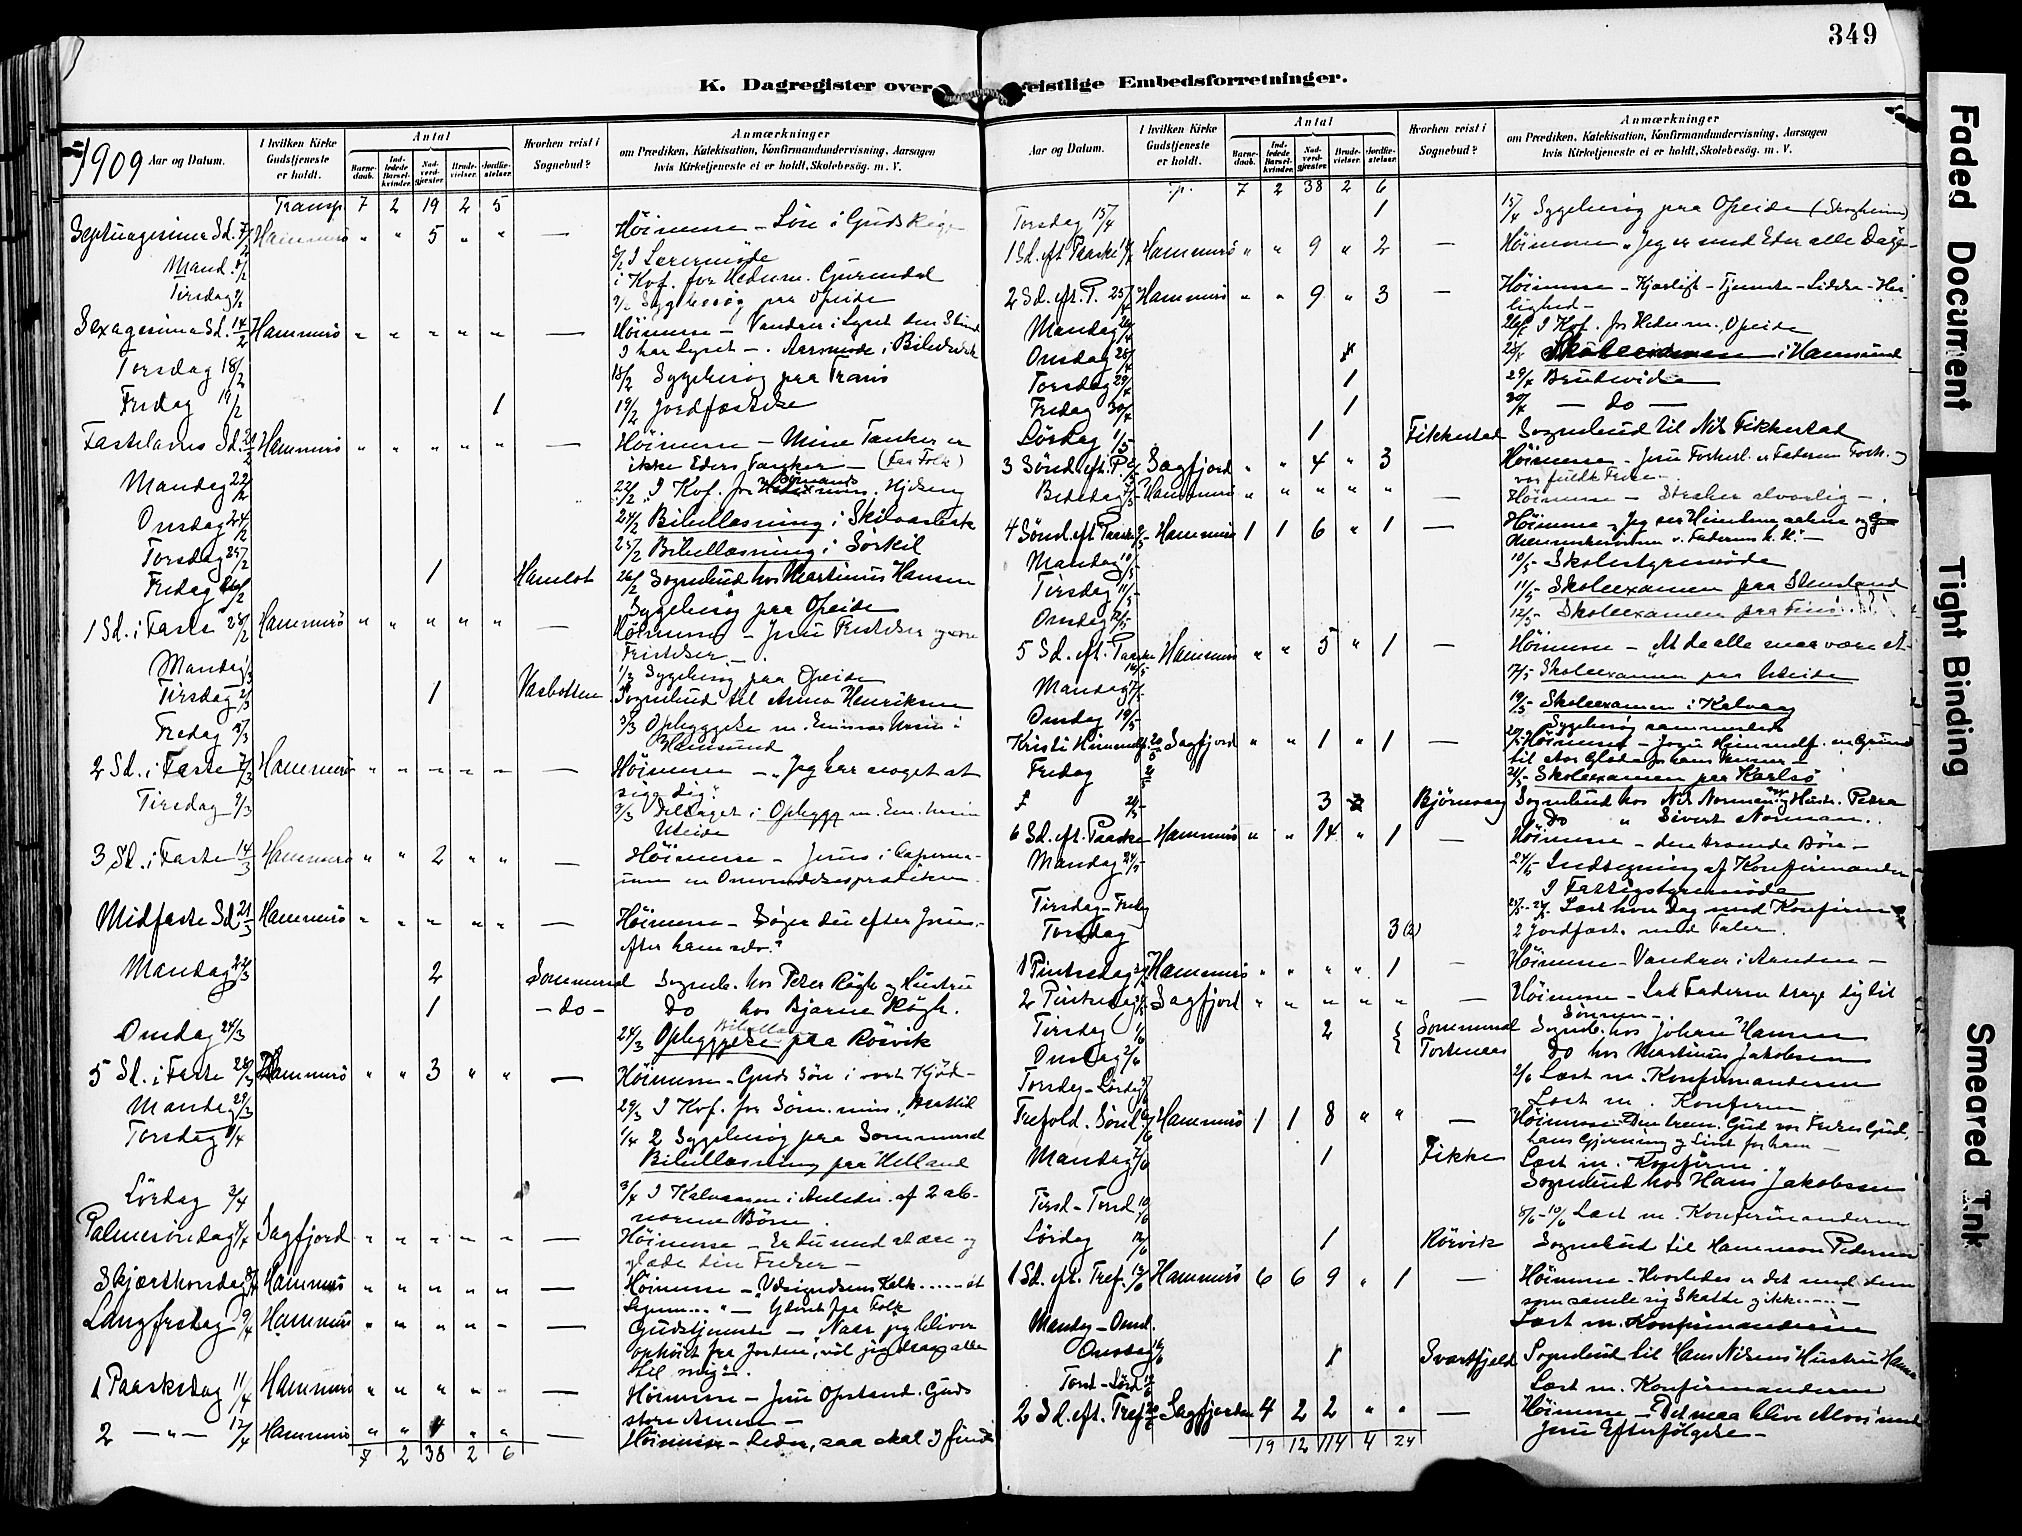 349
K. Dagregister over
eistlige Embedsforretninger.
1909 Aar og Datum.
I hvilken Kirke Gudstjeneste er holdt.
Antal
Barne-daab.
Ind-ledede Barsel-kvinder.
Nad-verd-gjæster.
Brude-vielser.
Jordfæ-stelser.
Hvorhen reist i Sognebud?
Anmærkninger
om Prædiken, Katekisation, Konfirmandundervisning, Aarsagen
hvis Kirketjeneste ei er holdt, Skolebesög. m. V.
Transp 7 2 19 2 5
Septuagesima Sd. 7/2 Hammerö " " 5 " " — Höimesse – Lön i Guds Rige
Mand. 8/2 8/2 I
i Kof. for Hedn.m.
Tirsdag 9/2 9/2 Sygebesög paa Opeide
Sexagesima Sd. 14/2 Hammerö " " " " " — Höimesse – Vandrer i Lyset den Stund
I har Lyset –. Aarsmöde i
Torsdag 18/2 18/2 Sygebesög paa
Fredag 19/2 1 19/2 Jordfæstelse
Fastelavns Sd. 21/2 Hammerö " " " " " — Höimesse – Mine Tanker er
ikke Eders Tanker – (Faa Folk)
Mandag 22/2 22/2 I Kof. for
Onsdag 24/2 24/2 Bibellæsning i Skilvasbakk
Torsdag 25/2 25/2 Bibellæsning i Sörkil
Fredag 26/2 1 Hamlot 26/2 Sognebud hos Martinus Hansen
Sygebesög paa Opeide
1 Sd. i Faste 28/2 Hammerö " " " " " — Höimesse – Jesu Fristelser og vore
Fristelser –.
Mandag 1/3 1/3 Sygebesög paa Opeide
Tirsdag 2/3 1 Vasbotten Sognebud til Anna Henriksen
Fredag 5/3 Opbyggelse m.
Hamsund
2 Sd. i Faste 7/3 Hammerö " " " " " — Höimesse – "Jeg har noget at
sige dig".
Tirsdag 9/3 9/3 Deltaget i Opbygg m. Em.
Uteide
3 Sd. i Faste 14/3 Hammerö " " 2 " " — Höimesse – Jesus i Caperna-
um en Omvendelsesprædiken.
Midfaste Sd 21/3 Hammerö " " " " " — Höimesse – Söger du efter Jesus.
efter ham selv?
Mandag 22/3 2 Sommersel Sogneb. hos Peter Rögh og Hustru
1 – do – Do hos Bjarne Rögh.
Onsdag 24/3 24/3 Opbyggelse paa Rörvik
5 Sd. i Faste 28/3 Hammerö " " 3 " " — Höimesse – Guds Sön i vort Kjöd –
Mandag 29/3 29/3 I Kof. for Söm. mis.
Torsdag 1/4 1/4 2 Sygebesög paa Sommersel
Bibellæsning paa Helland
Lördag 3/4 3/4 I Kalvaagen i Anledn. af 2 ab-
norme Börn.
Palmesöndag 4/4 Sagfjord " " " " " — Höimesse – Er du med at ære og
glæde din Frelser –
Skjærthorsdag 8/4 Hammerö " " " " " — Höimesse – Velsignelsens Kalk ..... et
Legem ..
Langfredag 9/4 Hammerö " " " " " — Gudstjeneste – Naar jeg bliver
ophöiet fra Jorden, vil jeg drage alle
til mig".
1 Paaskedag 11/4 Hammerö " " " " " — Höimesse – Jesu Opstand. Guds
store Amen –
2 — " — 12/4 Hammerö " " " " — Höimesse – Leder, saa skal I finde
7 2 38 2 6
Aar og Datum.
I hvilken Kirke Gudstjeneste er holdt.
Antal
Barne-daab.
Ind-ledede Barsel-kvinder.
Nad-verd-gjæster.
Brude-vielser.
Jordfæ-stelser.
Hvorhen reist i Sognebud?
Anmærkninger
om Prædiken, Katekisation, Konfirmandundervisning, Aarsagen
hvis Kirketjeneste ei er holdt, Skolebesög. m. V.
7 2 38 2 6
Torsdag 15/4 1 15/4 Sygebesög paa Opeide (Skogheim)
1 Sd. eft Paaske 18/4 Hammerö " " 9 " 2 — Höimesse "Jeg er med Eder alle Dage –
2 Sd. eft. P. 25/4 Hammerö " " 9 " 3 — Höimesse – Kjærligh – Tjeneste – Lidelse – Her-
lighed –
Mandag 26/4 26/4 I Kof. for Hedn.m. Opeide
Onsdag 28/4 28/4 Skoleexamen i Hamsund
Torsdag 29/4 1 29/4 Brudevielse
Fredag 30/4 1 30/4 — do —
Lördag 1/5 1 Fikkestad Sognebud til Nils Fikkestad
3 Sönd. eft. P. 2/5 Sagfjord " " 4 " 3 Höimesse –
vor fulde Frelse –
Bededag 7/5 Hammerö " " " " " — Höimesse – Straber alvorlig –.
4 Sönd. eft Paaske 9/5 Hammerö 1 1 6 " 1 — Höimesse – Jeg ser Himlene aabne og
Menneskesönnen v. Faderens h. H. –
Mandag 10/5 10/5 Skolestyremöde
Tirsdag 11/5 11/5 Skoleexamen paa Stensland
Onsdag 12/5 12/5 Skoleexamen paa
5 Sd. eft. Paaske 16/5 Hammerö " " 5 " 1 — Höimesse – "At de alle maa være et –
Mandag 17/5 17/5 Skoleexamen paa Uteide
Onsdag 19/5 19/5 Skoleexamen i Kalvaag
Sygebesög sammesteds
Kristi Himmelf. 20/5 Sagfjord " " 1 " 1 — Höimesse – Jesu Himmelf. en Grund
til stor Glæde for hans Venner –
Fredag 21/5 21/5 Skoleexamen paa Karlsö
3 Björnvaag Sognebud hos Nils Norman og Hustr. Petra
Do " Sivert Norman.
6 Sd. eft. Paaske Hammerö " " 14 " 1 — Höimesse – den troende Bön –
Mandag 24/5 24/5 Indtegning af Konfirmander
I Fattigstyremöde
Tirsdag – Fredag Læst hver Dag med Konfirm
Torsdag 3 (2) 2 Jordfæst. med Taler.
1 Pintsedag Hammerö " " " " 1 — Höimesse – Vandrer i Aanden –
2 Pintsedag Sagfjord " " " " " — Höimesse – Lad Faderen drage dig til
Sönnen –
Tirsdag 1/6 2 Sommersel Sogneb. hos Johan Hansen
Tortenaas Do hos Martinus Jakobsen
Onsdag 2/6 2/6 Læst m. Konfirmanderne
Torsdag – Lördag Læst m. Konfirm
Trefold. Sönd 6/6 Hammerö 1 1 8 " " — Höimesse –
hans Gjerning og Livet for ham –
Mandag 7/6 1 Fikke Læst m. Konfirm.
Sognebud hos Hans Jakobsen
Tirsd – Torsd 10/6 8/6 – 10/6 Læst m. Konfirmanderne
Lördag 12/6 1 Rörvik Sognebud til Hammeron Pedersen
1 Sd. eft. Tref. 13/6 Hammerö 6 6 9 " 1 — Höimesse – Hvorledes er det med dem
som samle sig Skatte og ikke .... –
Mandag – Onsd. Læst m. Konfirmanderne
Onsdag 16/6 1 Svartfjeld Sognebud til Hans Nilsens Hustru Hanna
Torsd – Lörd Læst m. Konfirmanderne
2 Sd. eft. Tref 20/6 Sagfjorden 4 2 2 " " — Höimesse – Det maa blive Alvor med
Jesu Efterfölgelse –
19 12 114 4 24
Faded Document
Tight Binding
Smeared Ink